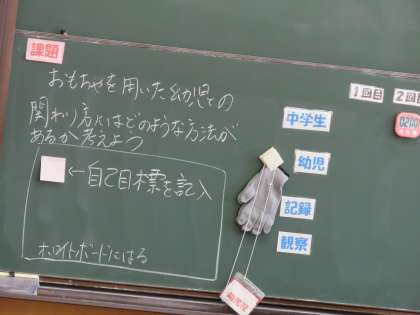 課題
おもちゃを用いた幼児との
関わり方にはどのような方法が
あるか考えよう
←自己目標を記入
ホワイトボードにはる
1回目
2回
中学生
幼児
記録
観察